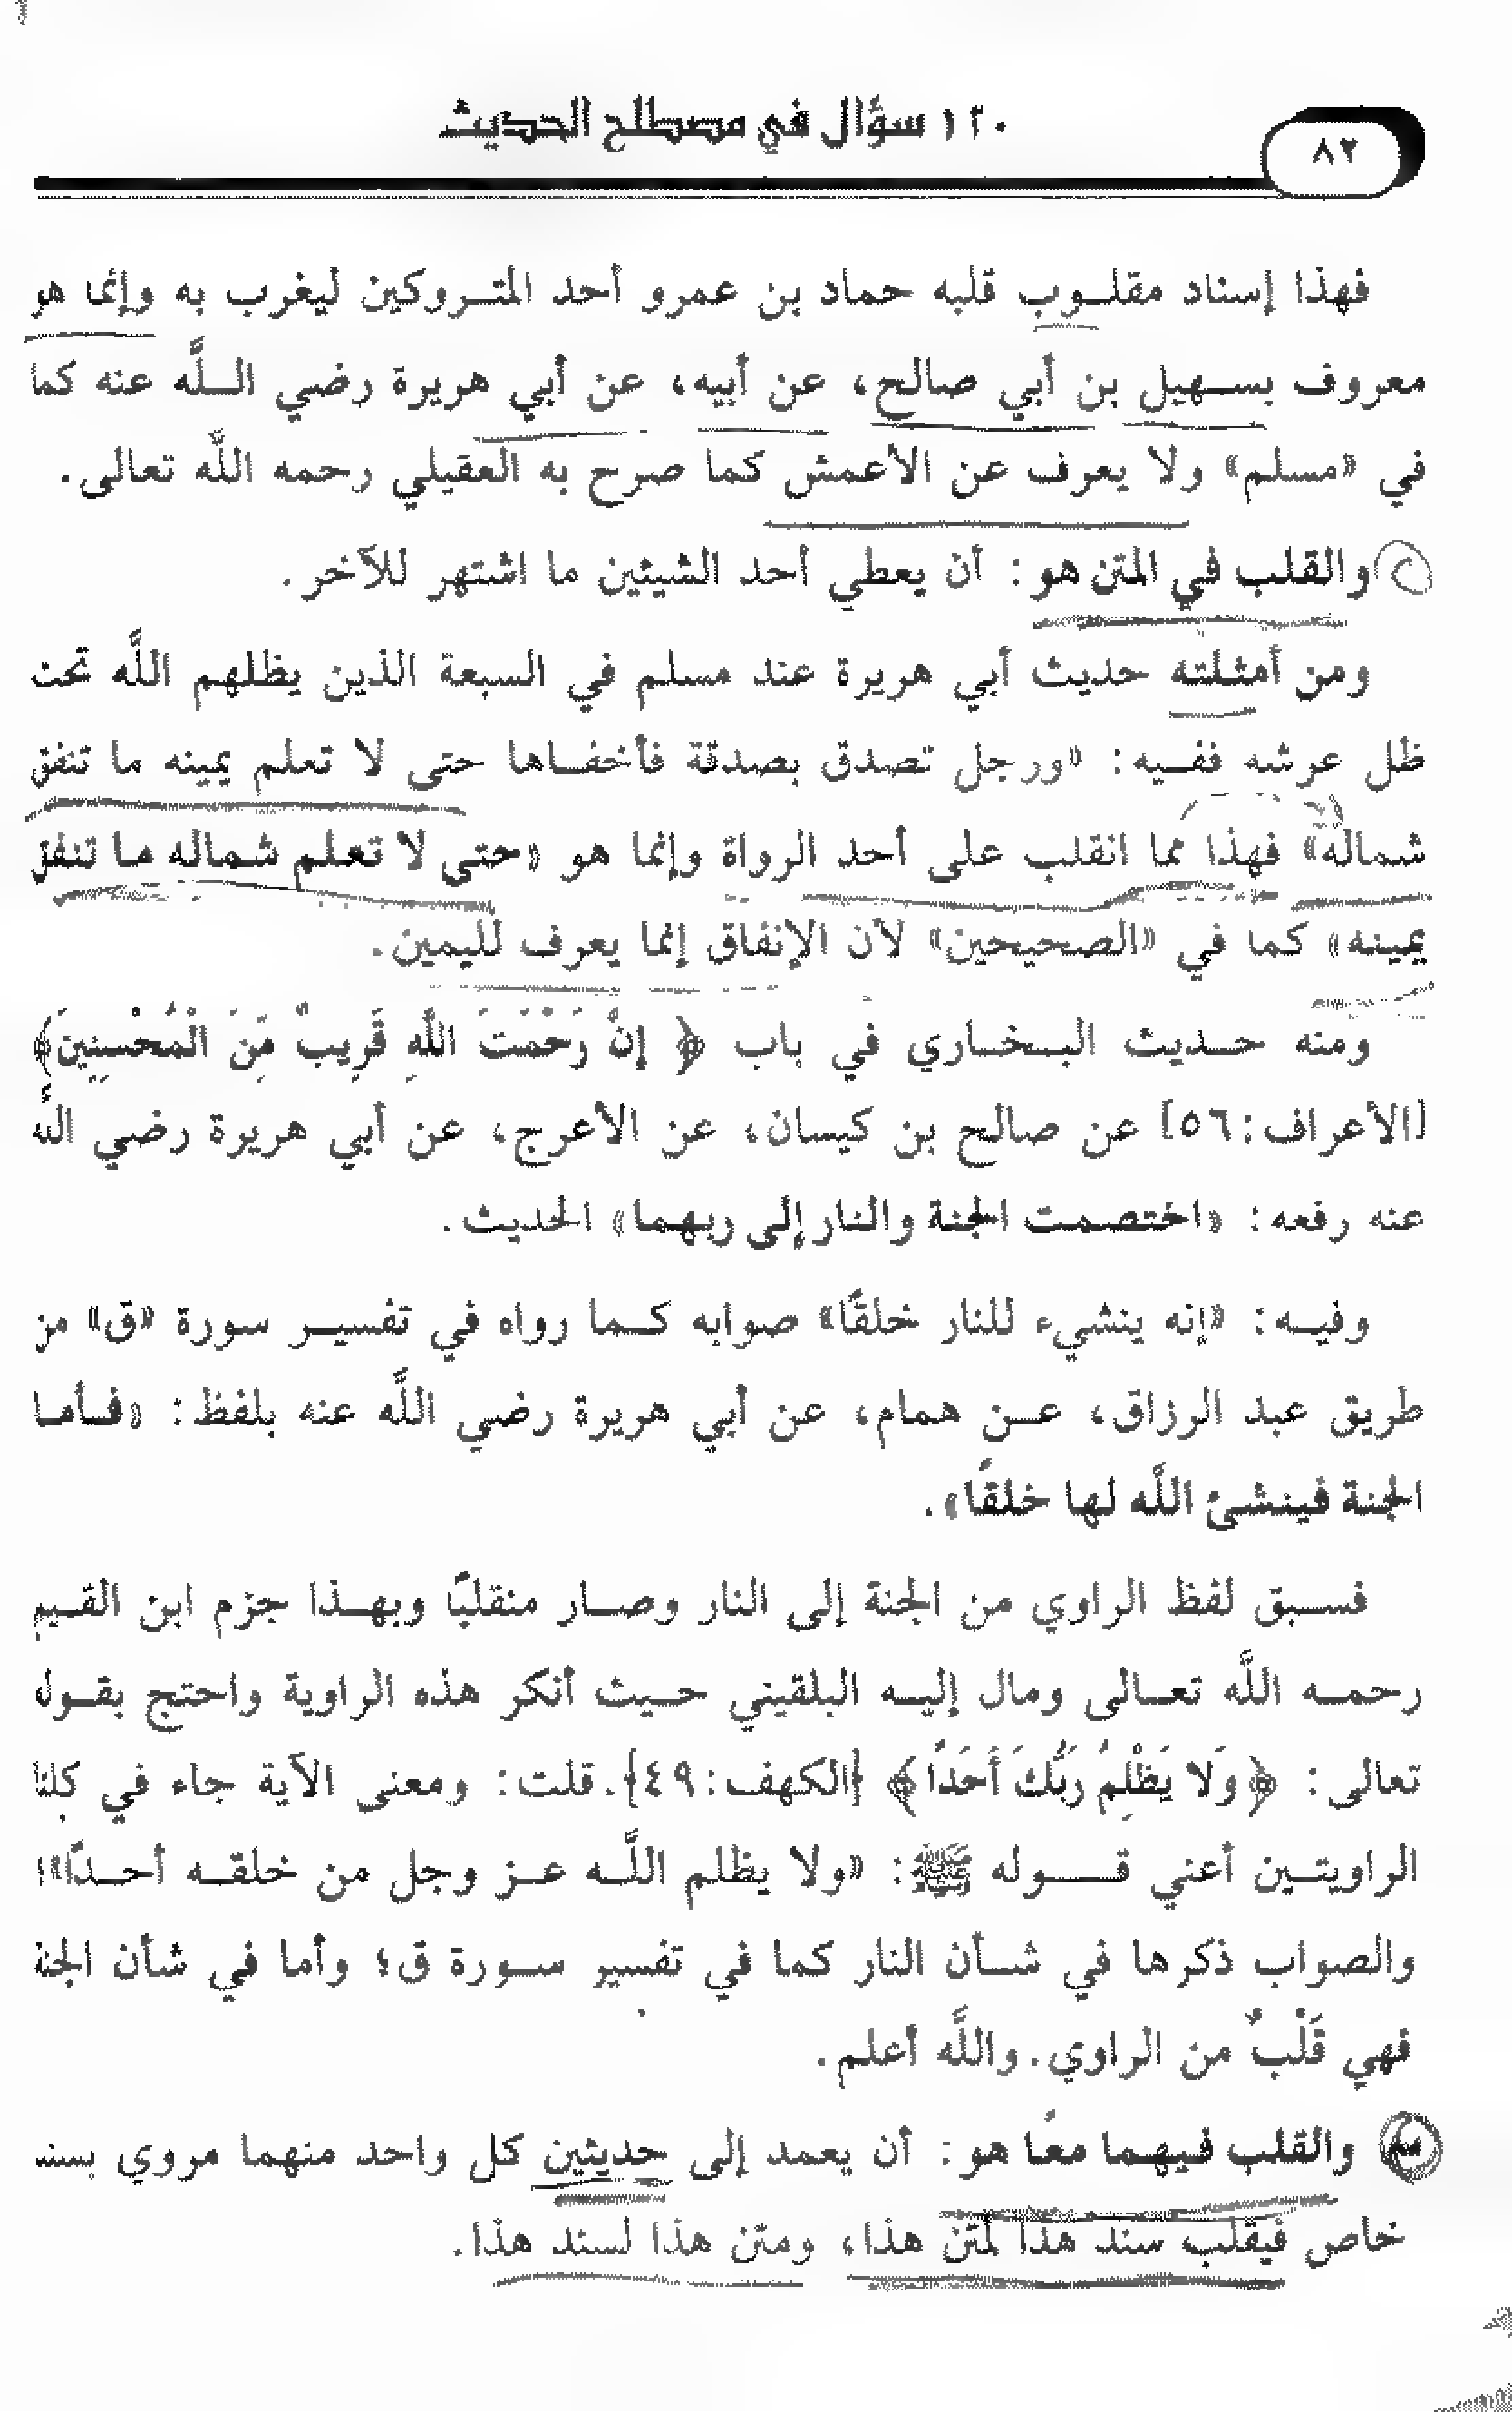 ٨٢
١٢٠ سؤال في مصطلح الحديث
فهذا إسناد مقلـوب قلبه حماد بن عمرو أحد المتـروكين ليغرب به وإنما هو
معروف بسـهيل بن أبي صالح، عن أبيه، عن أبي هريرة رضي اللَّه عنه كما
في «مسلم» ولا يعرف عن الأعمش كما صرح به العقيلي رحمه اللَّه تعالى.
والقلب في المتن هو: أن يعطي أحد الشيئين ما اشتهر للآخر.
ومن أمثلته حديث أبي هريرة عند مسلم في السبعة الذين يظلهم اللَّه تحت
ظل عرشه ففـيه: «ورجل تصدق بصدقة فأخفـاها حتى لا تعلم يمينه ما تنفق
شماله» فهذا مما انقلب على أحد الرواة وإنما هو «حتى لا تعلم شماله ما تنفق
يمينه» كما في «الصحيحين» لأن الإنفاق إنما يعرف لليمين.
ومنه حـديث البـخـاري في باب ﴿ إِنَّ رَحْمَتَ اللَّهِ قَرِيبٌ مِّنَ الْمُحْسِنِينَ﴾
[الأعراف:٥٦] عن صالح بن كيسان، عن الأعرج، عن أبي هريرة رضي اللَّه
عنه رفعه: «اختصمت الجنة والنار إلى ربهما» الحديث.
وفيـه: «إنه ينشيء للنار خلقًا» صوابه كـما رواه في تفسيـر سورة «ق» من
طريق عبد الرزاق، عـن همام، عن أبي هريرة رضي اللَّه عنه بلفظ: «فـأما
الجنة فينشئ اللَّه لها خلقًا».
فسـبق لفظ الراوي من الجنة إلى النار وصـار منقلبًا وبهـذا جزم ابن القـيم
رحمـه اللَّه تعـالى ومال إليـه البلقيني حـيث أنكر هذه الراوية واحتج بقـول
تعالى: ﴿ وَلا يَظْلِمُ رَبُّكَ أَحَدًا ﴾ [الكهف:٤٩].قلت: ومعنى الآية جاء في كلتا
الراويتـين أعني قـــوله ﷺ: «ولا يظلم اللَّـه عـز وجل من خلقـه أحـدًا»
والصواب ذكرها في شـأن النار كما في تفسير سـورة ق؛ وأما في شأن الجنة
فهي قَلْبٌ من الراوي.واللَّه أعلم.
والقلب فيهما معًا هو: أن يعمد إلى حديثين كل واحد منهما مروي بسند
خاص فيقلب سند هذا لمتن هذا، ومتن هذا لسند هذا.